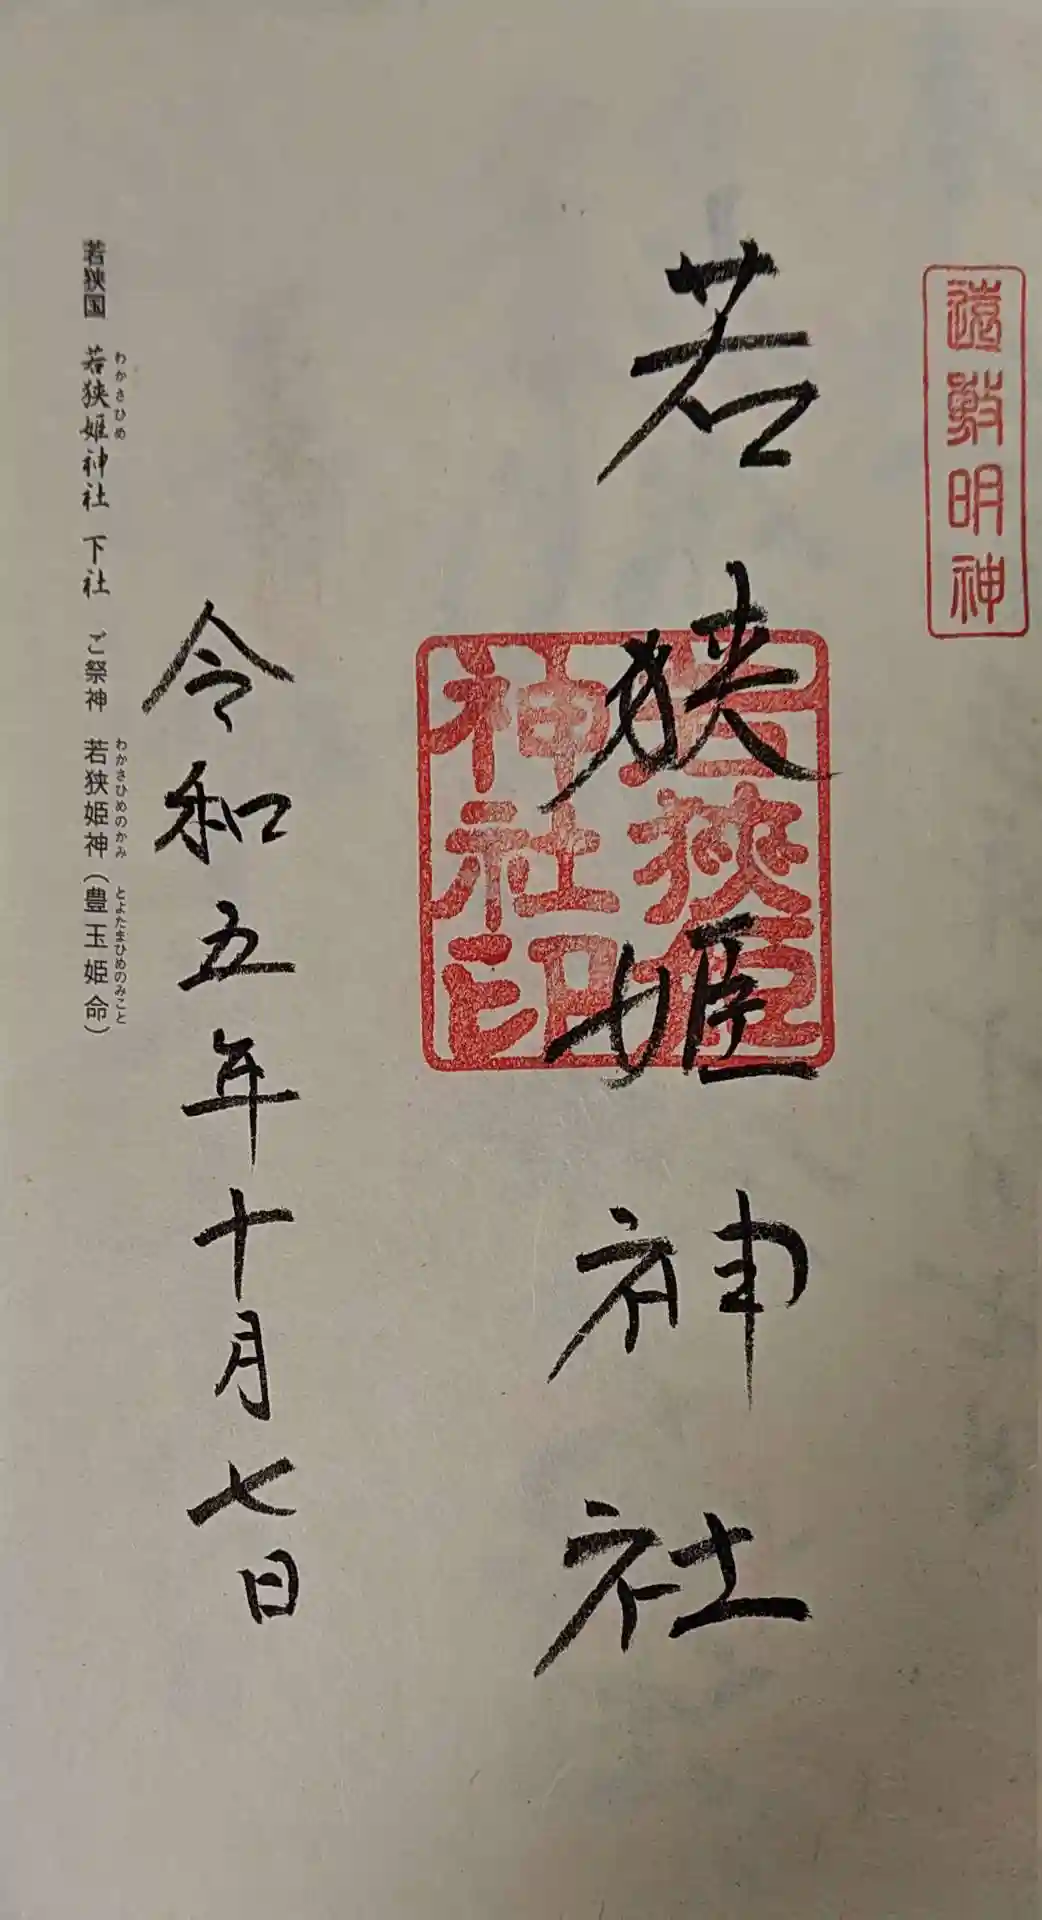 遠敷明神
若狭姫神社
若狭姫
神社印
令和五年十月七日
若狭国 若狭姫神社 下社 ご祭神 若狭姫神（豊玉姫命）
わかさひめ わかさひめのかみ とよたまひめのみこと